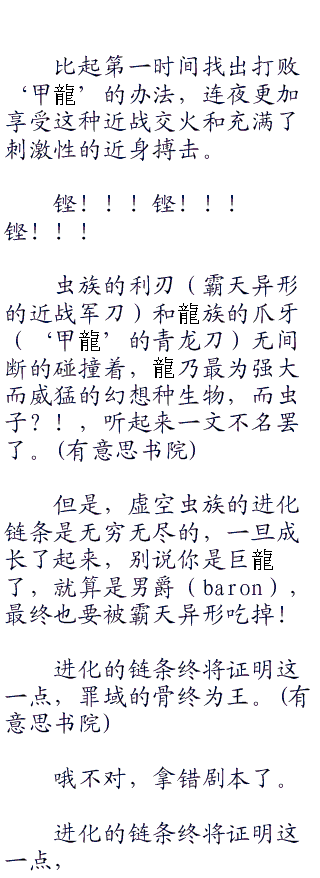 比起第一时间找出打败
‘甲龍’的办法，连夜更加
享受这种近战交火和充满了
刺激性的近身搏击。
铿！！！铿！！！
铿！！！
虫族的利刃（霸天异形
的近战军刀）和龍族的爪牙
（‘甲龍’的青龙刀）无间
断的碰撞着，龍乃最为强大
而威猛的幻想种生物，而虫
子？！，听起来一文不名罢
了。(有意思书院)
但是，虚空虫族的进化
链条是无穷无尽的，一旦成
长了起来，别说你是巨龍
了，就算是男爵（baron），
最终也要被霸天异形吃掉！
进化的链条终将证明这
一点，罪域的骨终为王。(有
意思书院)
哦不对，拿错剧本了。
进化的链条终将证明这
一点，